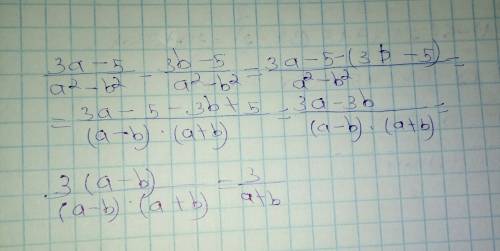 (3a - 5)/(a² - b²) - (3b - 5)/(a² - b²) = (3a - 5 - (3b - 5))/(a² - b²) =
= (3a - 5 - 3b + 5)/((a - b) · (a + b)) = (3a - 3b)/((a - b) · (a + b)) =
3(a - b)/((a - b) · (a + b)) = 3/(a + b)